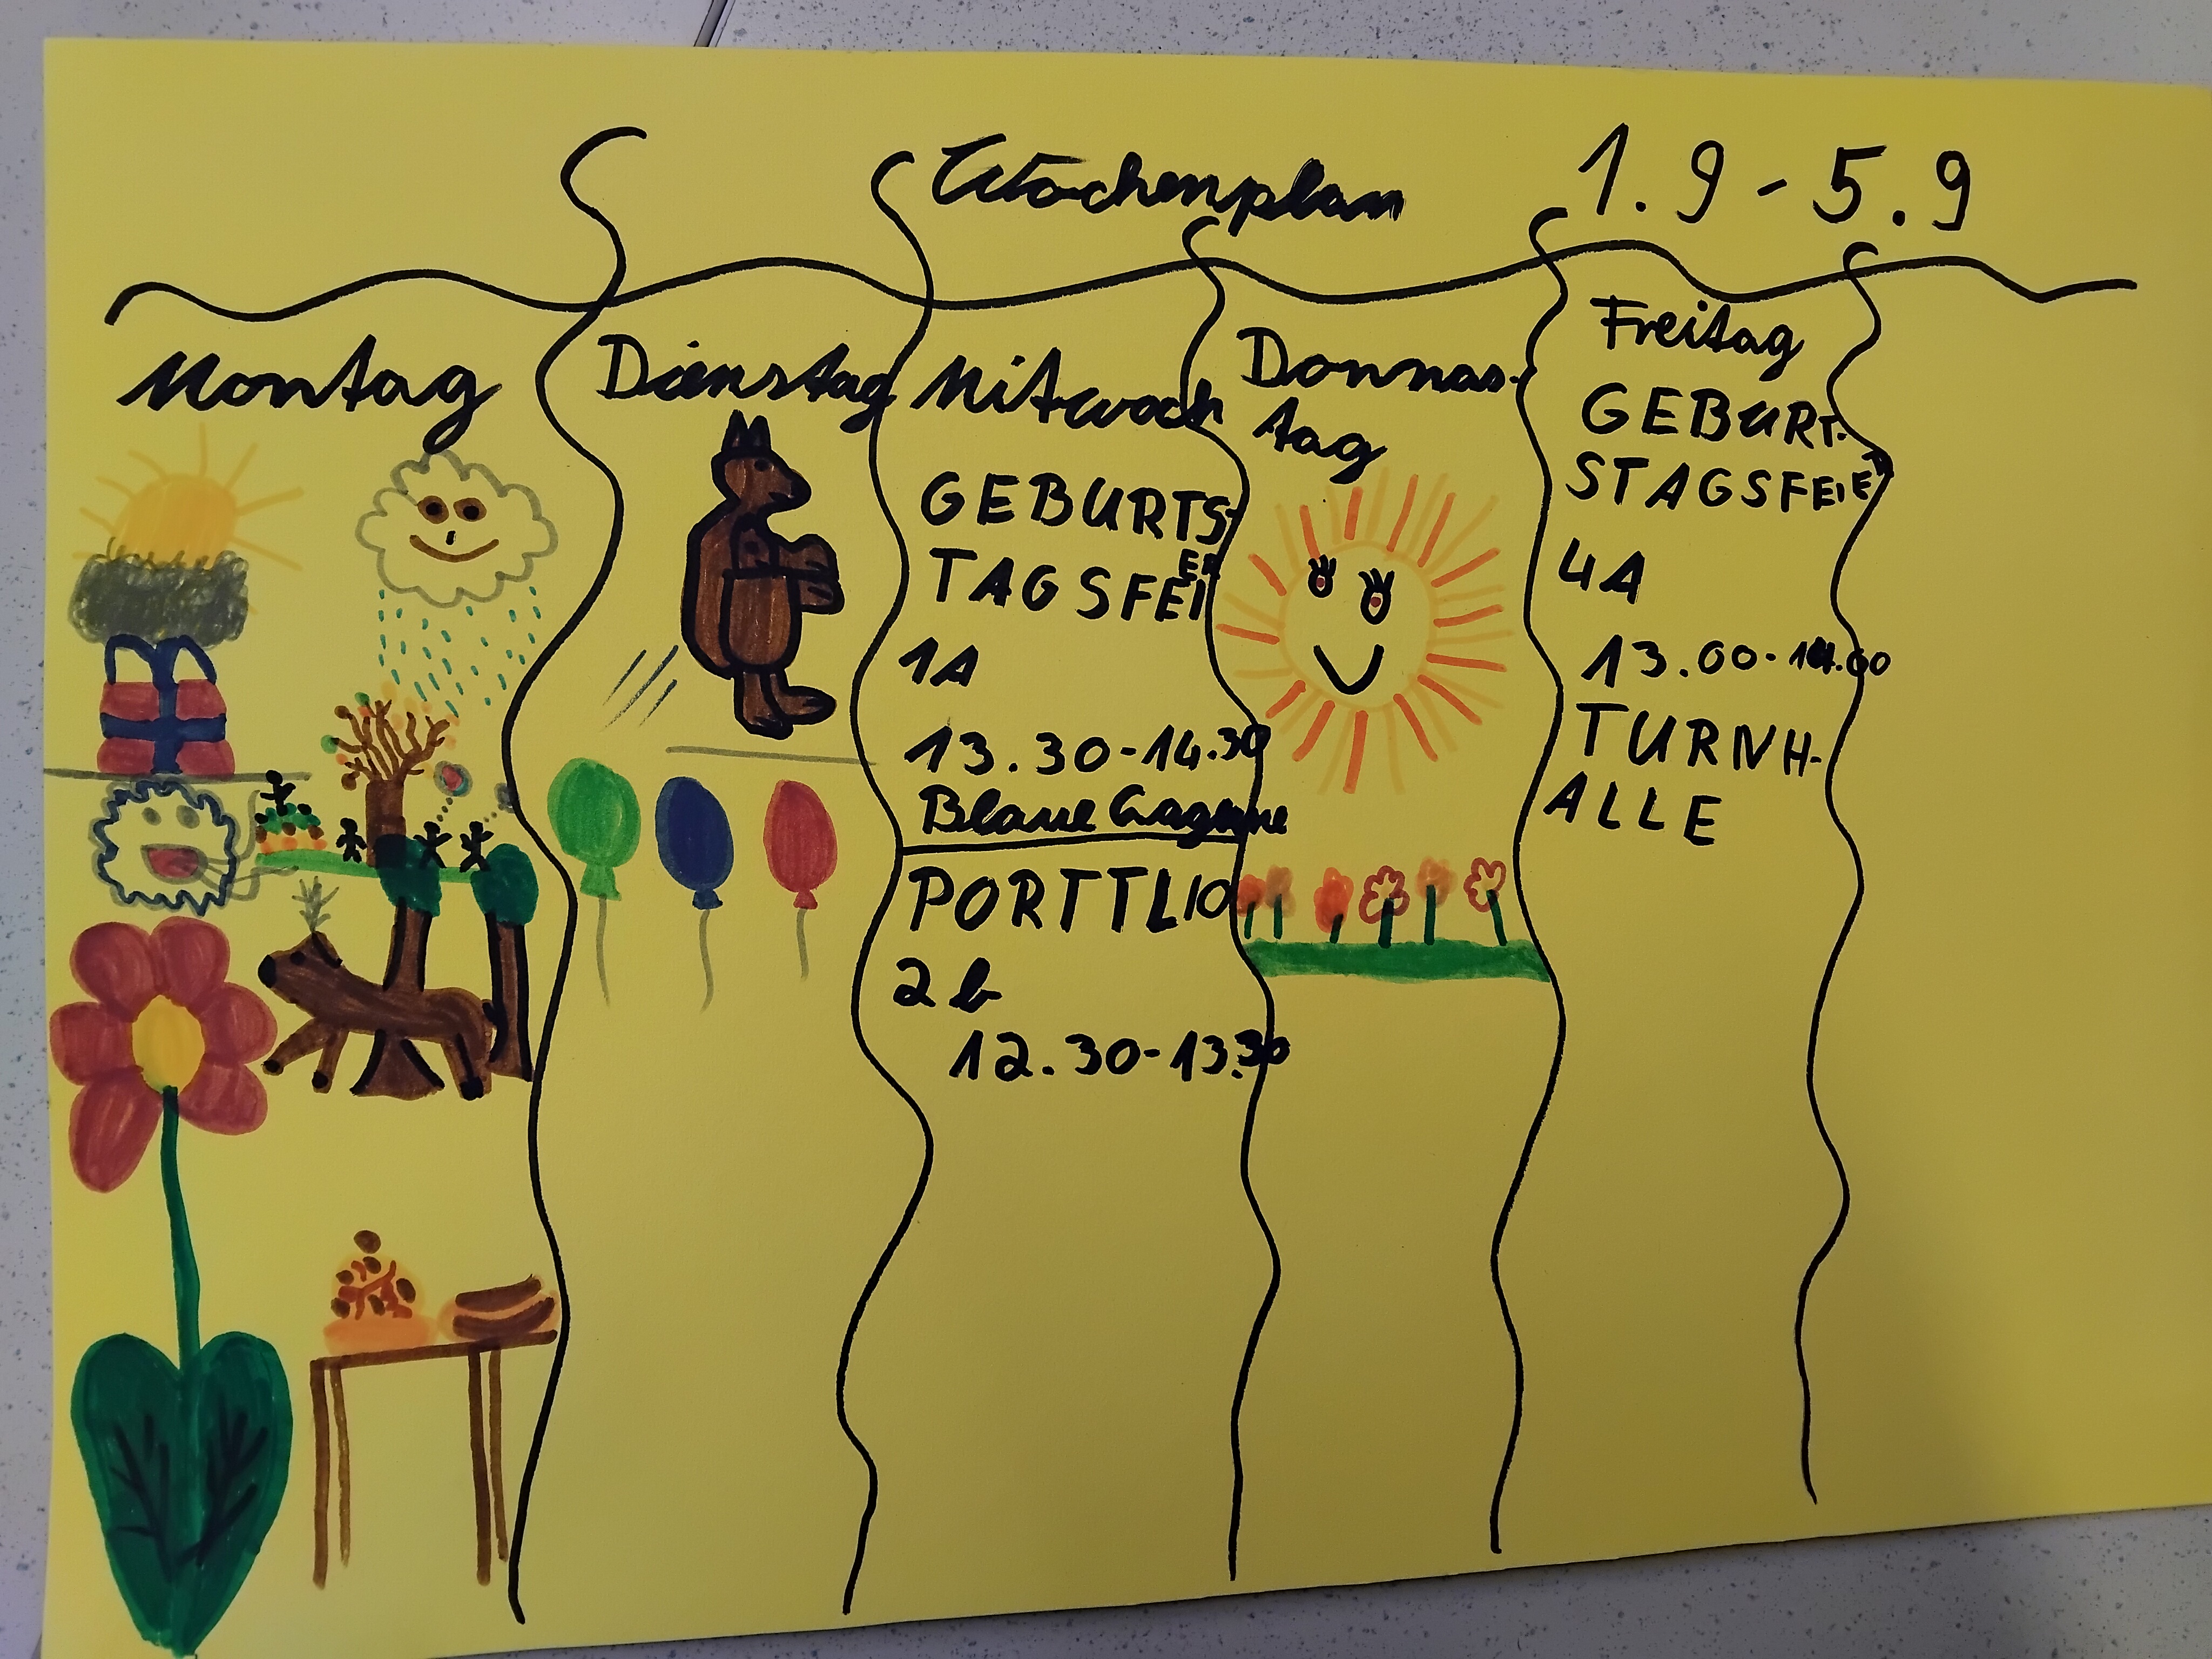 Wochenplan 1.9 - 5.9
Montag
Dienstag
Mitwoch
GEBURTS-
TAGSFEIER
1A
13.30-14.30
Blaue
PORTTLIO
2b
12.30-13.30
Donnas-
tag
Freitag
GEBURT-
STAGSFEIE
4A
13.00-14.00
TURNH-
ALLE